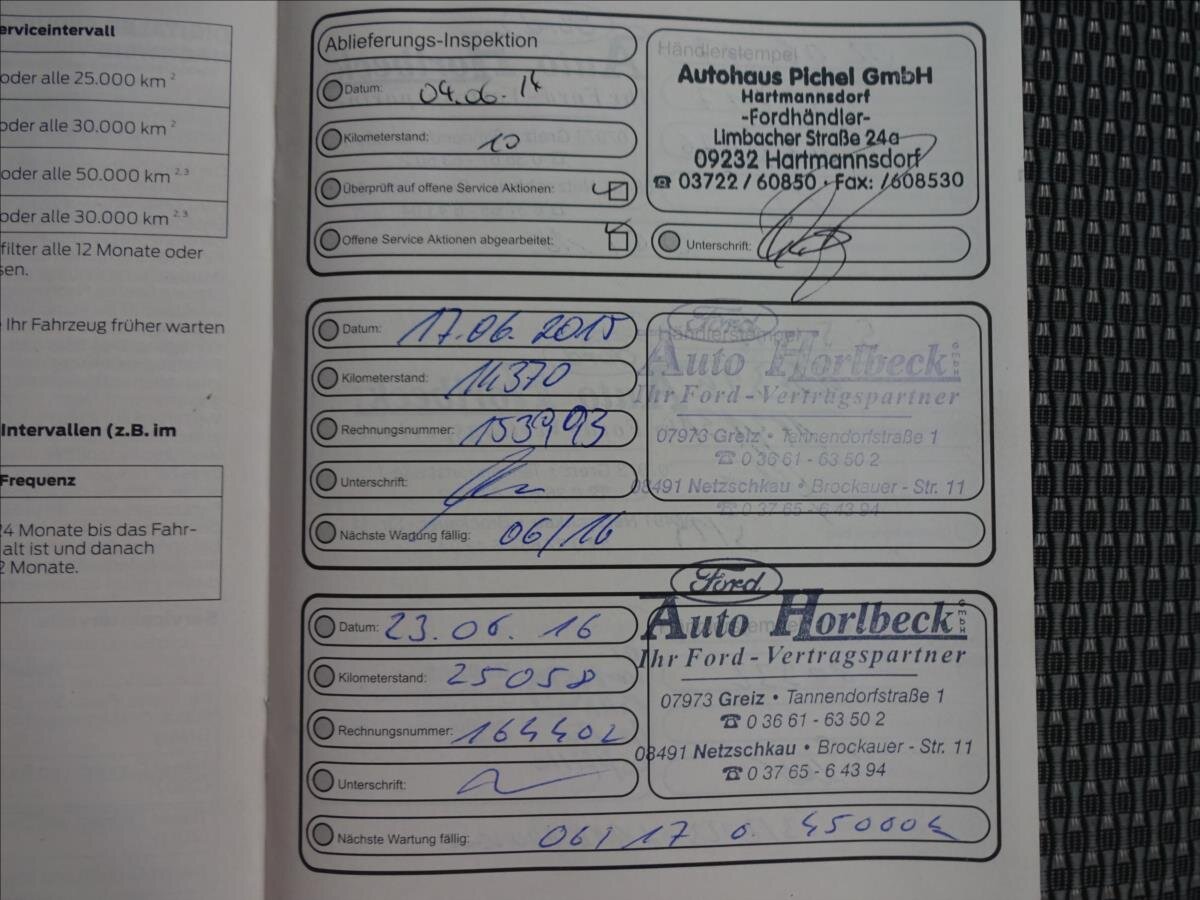 erviceintervall
oder alle 25.000 km 2
oder alle 30.000 km 2
oder alle 50.000 km 2,3
oder alle 30.000 km 2,3
filter alle 12 Monate oder
sen.
Ihr Fahrzeug früher warten
Intervallen (z.B. im
Frequenz
24 Monate bis das Fahr-
alt ist und danach
2 Monate.
Ablieferungs-Inspektion
Datum: 04.06.14
Kilometerstand: 10
Überprüft auf offene Service Aktionen:
Offene Service Aktionen abgearbeitet:
Händlerstempel
Autohaus Pichel GmbH
Hartmannsdorf
-Fordhändler-
Limbacher Straße 24a
09232 Hartmannsdorf
☎ 03722 / 60850 · Fax: /608530
Unterschrift:
Datum: 17.06.2015
Kilometerstand: 11370
Rechnungsnummer: 153993
Unterschrift:
Nächste Wartung fällig: 06/16
Händlerstempel
Ford
Auto Horlbeck GmbH
Ihr Ford - Vertragspartner
07973 Greiz • Tannendorfstraße 1
☎ 0 36 61 - 63 50 2
08491 Netzschkau • Brockauer - Str. 11
☎ 0 37 65 - 6 43 94
Datum: 23.06.16
Kilometerstand: 25058
Rechnungsnummer: 164402
Unterschrift:
Nächste Wartung fällig: 06/17 o. 45000k
Ford
Auto Horlbeck GmbH
Ihr Ford - Vertragspartner
07973 Greiz • Tannendorfstraße 1
☎ 0 36 61 - 63 50 2
08491 Netzschkau • Brockauer - Str. 11
☎ 0 37 65 - 6 43 94